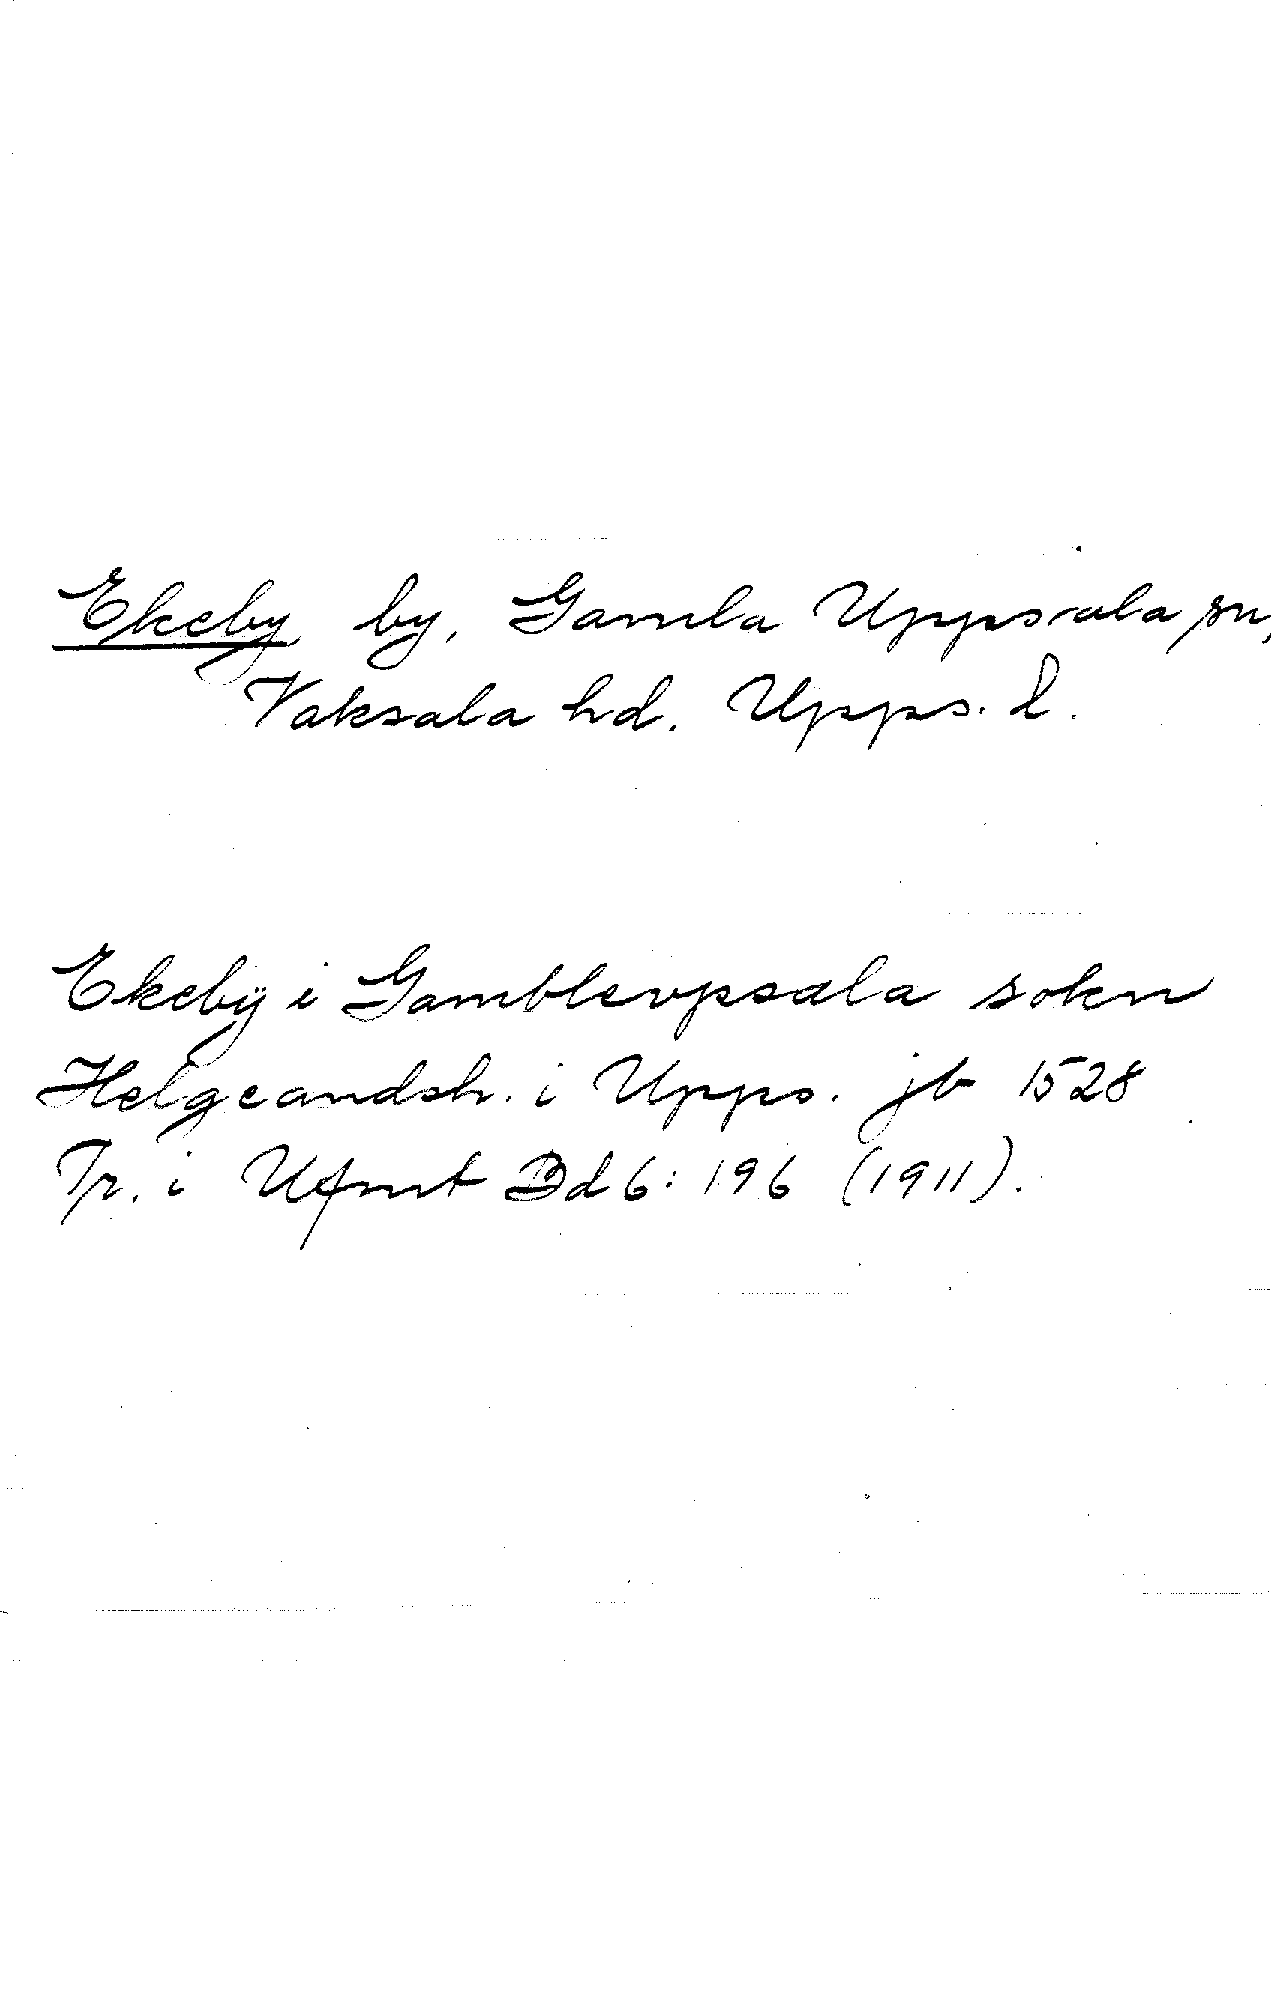 Ekeby by, Gamla Uppsala sn,
Vaksala hd. Upps. l.
Ekebÿ i Gamblevpsala sokn
Helgeandsh. i Upps. jb 1528
Tr. i Ufmt Bd 6: 196 (1911).